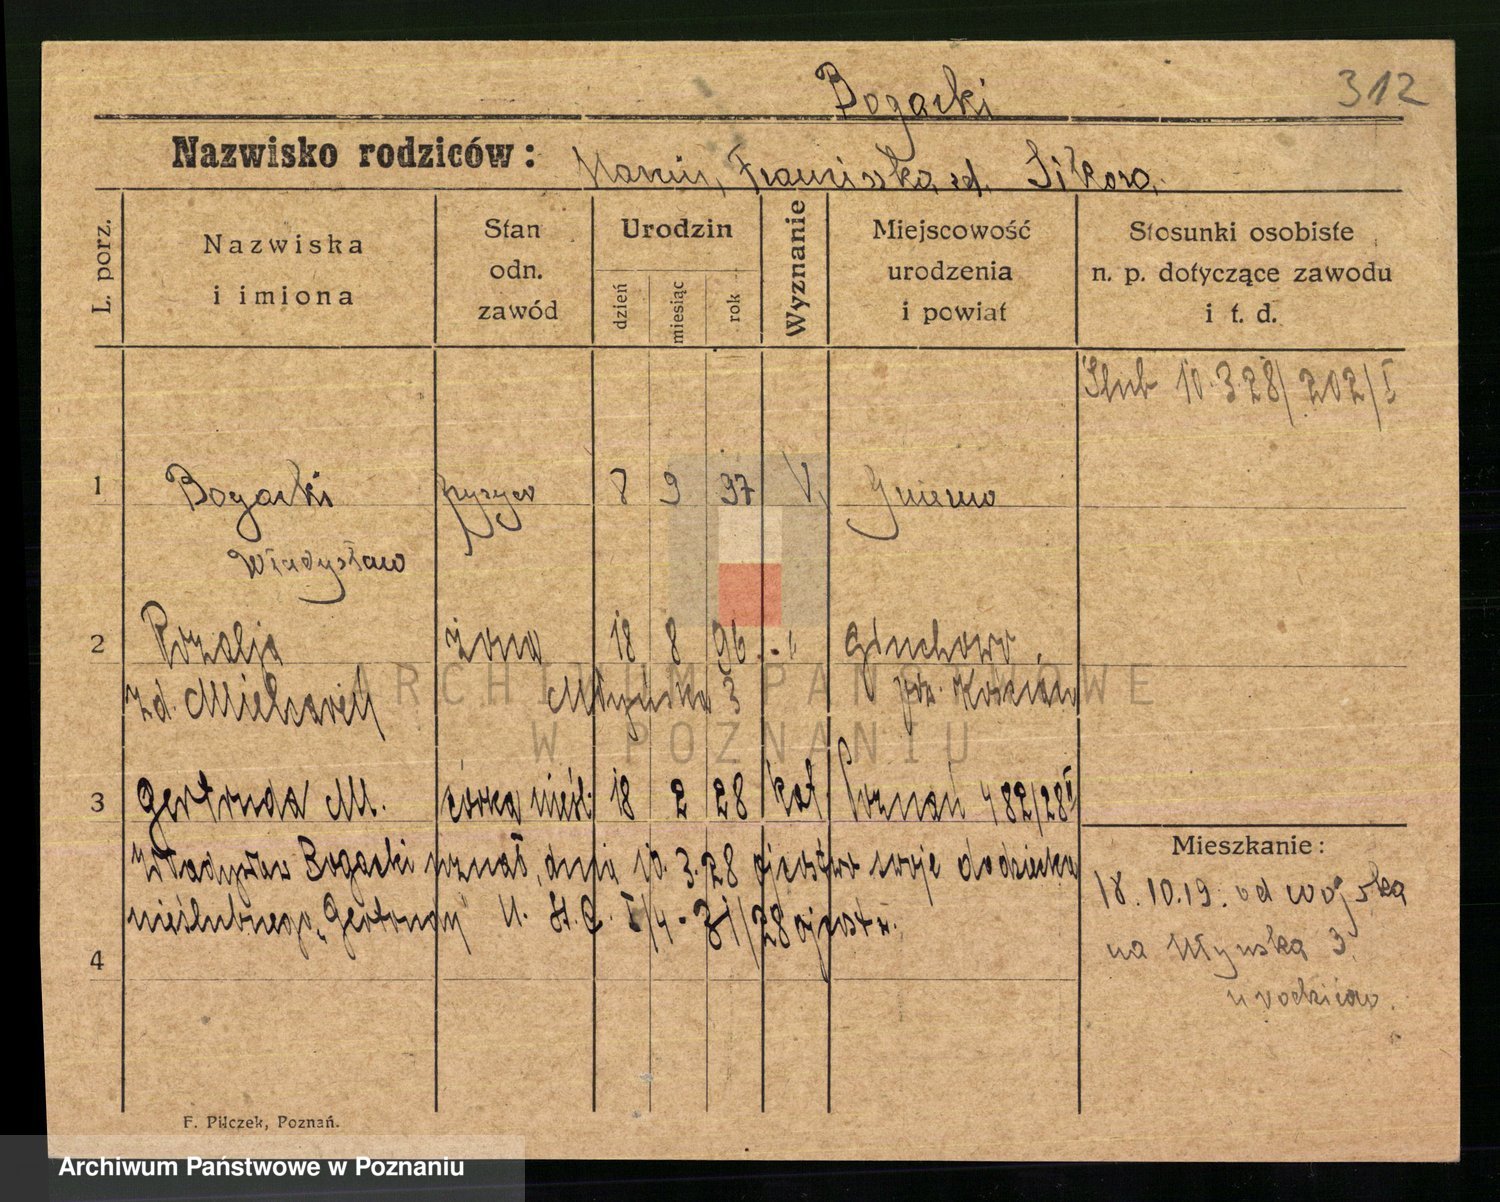 312
Bogacki
Nazwisko rodziców: Marcin, Franciszka zd. Sikora.
L. porz.
Nazwiska i imiona
Stan odn. zawód
Urodzin
dzień
miesiąc
rok
Wyznanie
Miejscowość urodzenia i powiat
Stosunki osobiste n. p. dotyczące zawodu i t. d.
Ślub 10.3.28/202/I
1 Bogacki fryzyer 8 9 97 Gniezno
Władysław
2 Rozalja żona 18 8 96 Głuchowo
zd. Mielcarek Młyńska 3 Kościan
3 Gertruda M. córka nieśl. 18 2 28 kat. Poznań 482/28 I
Władysław Bogacki uznał, dnia 10.3.28 ojcostwo swoje do dziecka
nieślubnego "Gertrudy" U. St. C. I/4-31/28 ojcostw.
4
Mieszkanie:
18.10.19. od wojska
na Młyńska 3.
u rodziców.
F. Pilczek, Poznań.
ARCHIWUM PAŃSTWOWE
W POZNANIU
Archiwum Państwowe w Poznaniu